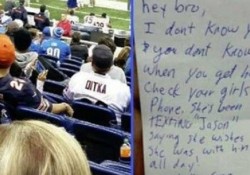 DITKA
hey bro,
I dont know y
& you dont know
When you get a
Check your girls
Phone. She's been
TEXTING "Jason"
saying she wishes
She was with him
all day!